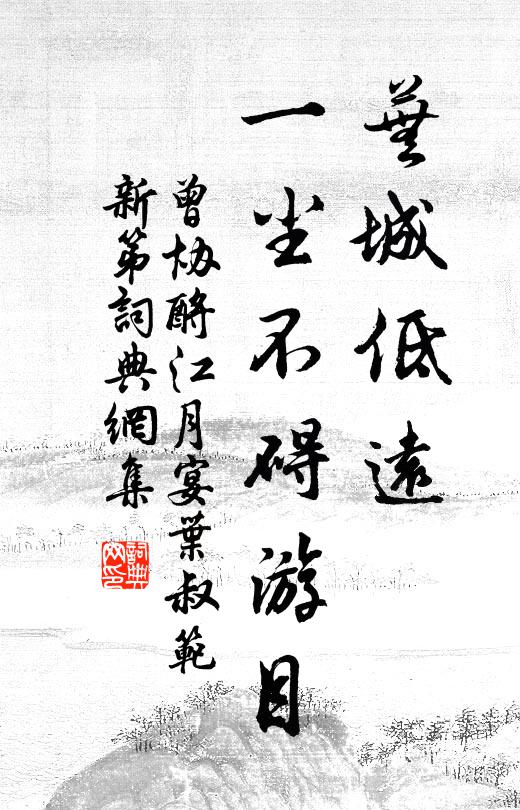 蕪城低遠
一尘不碍游目
曾协酹江月宴葉叔範
新第詞典網集
詞典网印